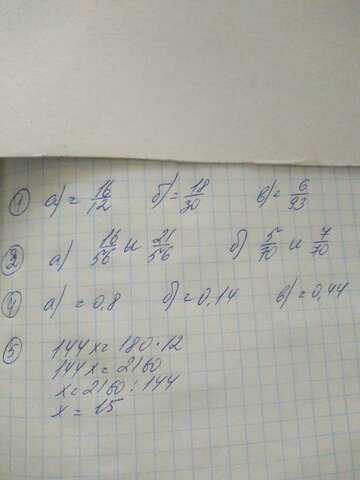 1 а) = 16/12 б) = 18/30 в) = 6/93
2 а) 16/56 и 21/56 б) 5/70 и 7/70
4 а) = 0,8 б) = 0,14 в) = 0,44
5 144x = 180·12
144x = 2160
x = 2160 : 144
x = 15